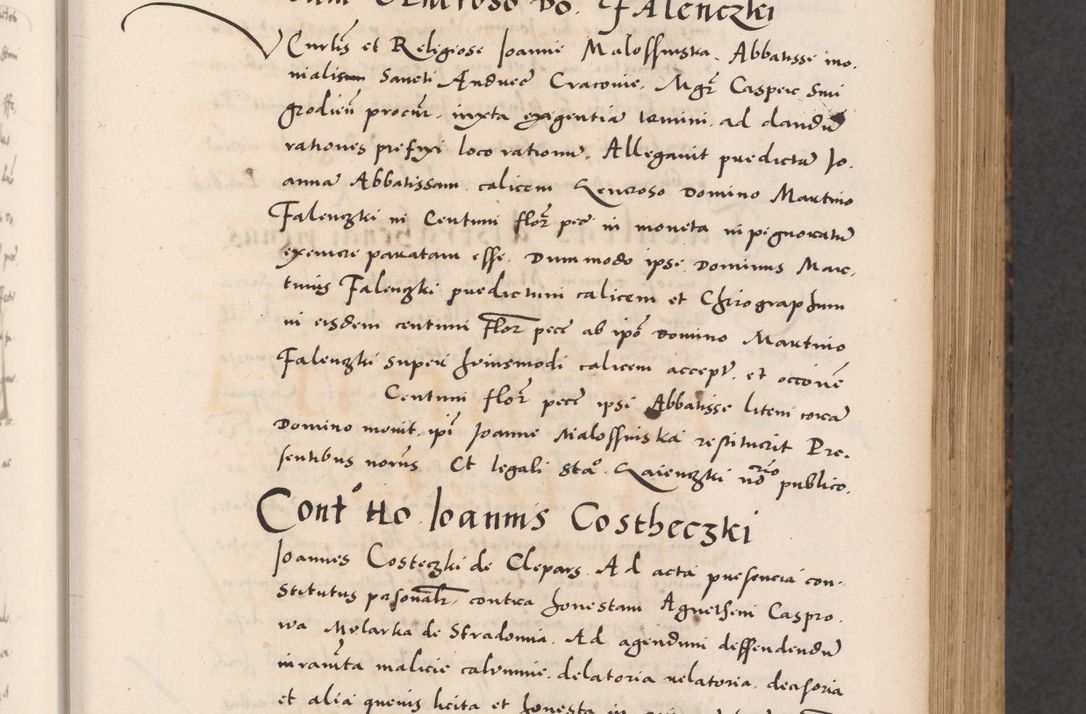 Generoso Do. Falenczki
et Religiose Joanne Malosſinska. Abbatisse mo-
nialium Sancti Andreę Cracovie. Mgr Casper Smi
grodień procur. iuxta exigentia termini. ad dandū
rationes prefixi loco rationū. Allegavit predictā Jo-
annā Abbatissam calicem Generoso Domino Martino
Falenczki in Centum flor pecć in moneta in pegnoratū
exemere paratam esse. Dummodo ipse Dominus Mar-
tinus Falenczki predictum calicem et Chirographum
in eisdem centum flor pecć ab ipō Domino Martino
Falenczki super huiusmodi calicem accept. et
Centum flor pecć ipse Abbatisse
Domino ipī Joanne Malosſinska restituerit Pre-
sentibus Et legali Sta. Gaienczki publico.
Cont Ho Joannis Costheczki
Joannes Costeczki de Clepars. Ad acta presencia con-
stitutus psonalr. contra honestam Agnetheni Caspro-
wa Molarka de Stradomia. Ad agendum deffendendū
malicie calumnie. delatoria relatoria. decisoria
et alia quevis licita et honesta in